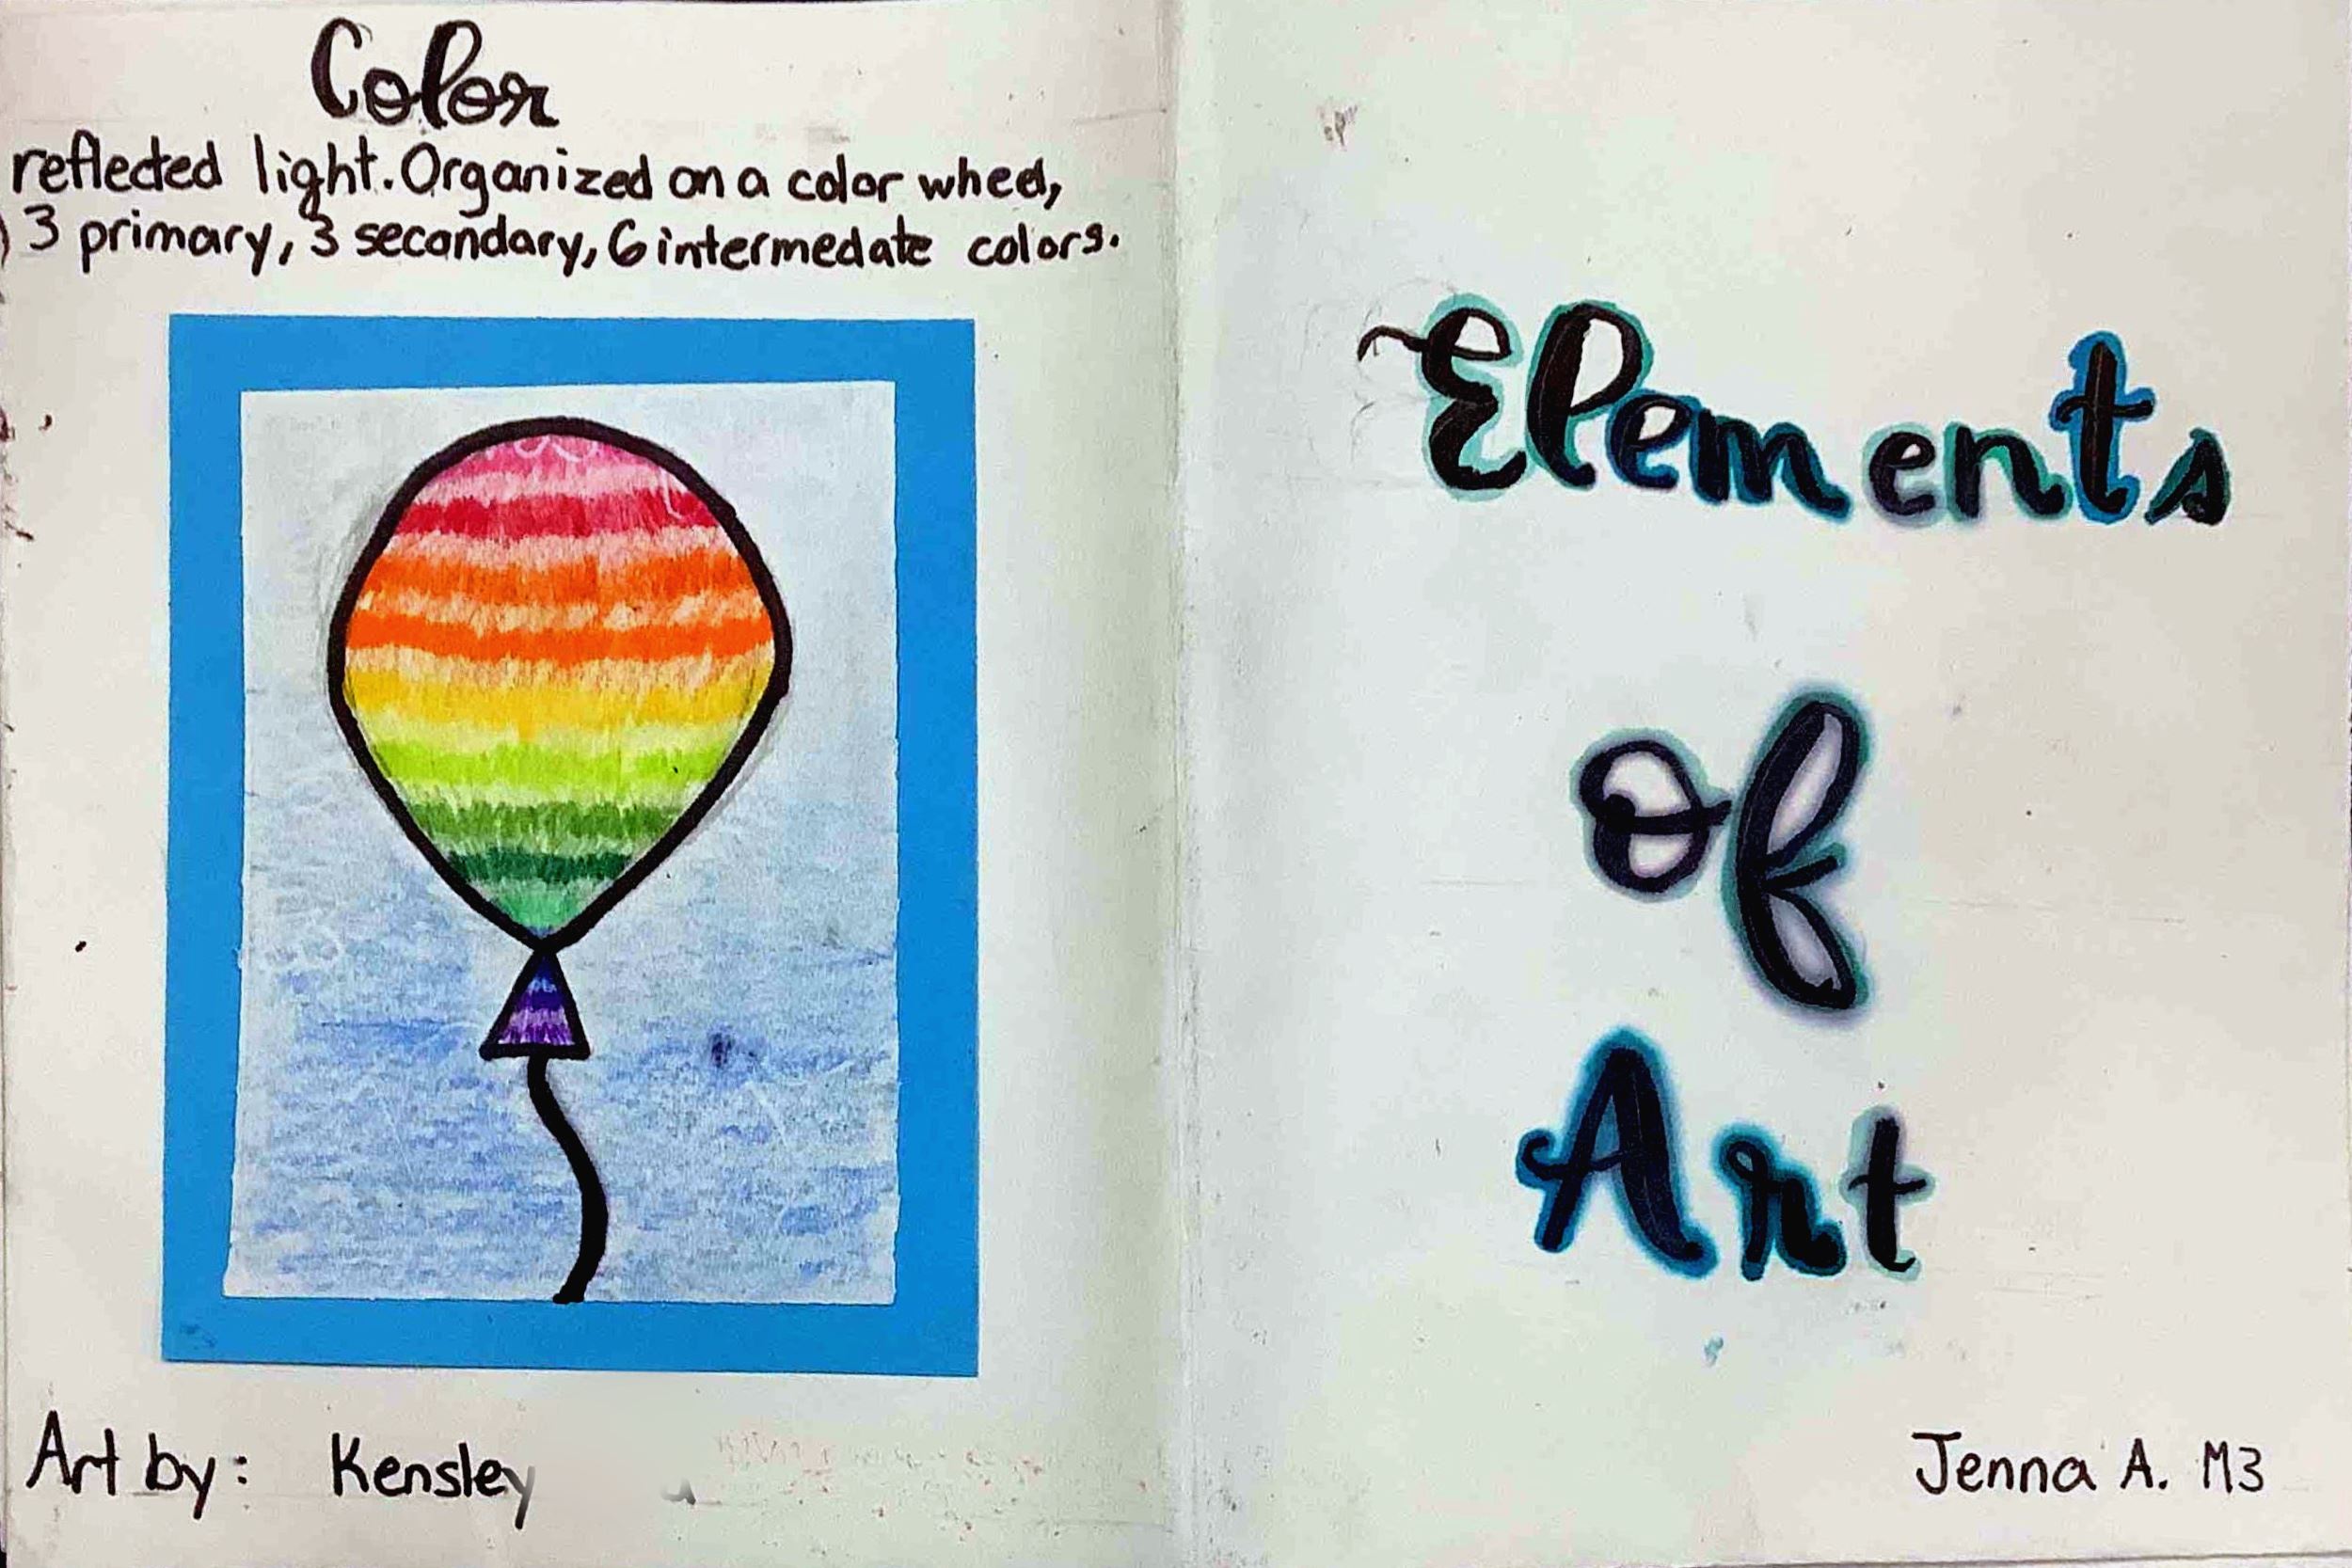 Color
reflected light. Organized on a color wheel,
3 primary, 3 secondary, 6 intermedate colors.
Art by: Kensley
Elements
of
Art
Jenna A. M3